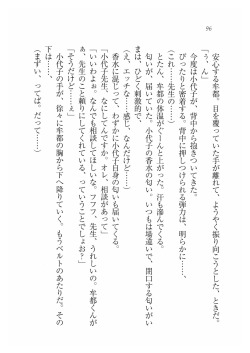 96
安心する牟都。目を覆っていた手が離れて、ようやく振り向こうとした、ときだ。
「う、ん」
今度は小代子が、背中から抱きついてきた。
ぴったりと密着する。背中に押しつけられる弾力は、明らかに……。
（これ……先生の……）
とたん、牟都の体温がぐーんと上がった。汗も滲んでくる。
匂いが、届いていた。小代子の香水の匂い。いつもは場違いで、閉口する匂いがい
まは、ひどく刺激的で、
（え、エッチな……感じ、なんだけど……）
香水に混じって、わずかに小代子自身の匂いも届いてくる。
「小代子先生、なにしてんですか。オレ、相談があって」
「いいわよぉ。なんでも相談してほしいな。フフフ、先生、うれしいの。牟都くんが
ぁ、先生のこと頼りにしてくれている、っていうことでしょぉ？」
「そうだけど……え」
小代子の手が、徐々に牟都の胸から下へ降りていく。もうベルトのあたりだ。その
下は……。
（まずい、ってば。だって……）